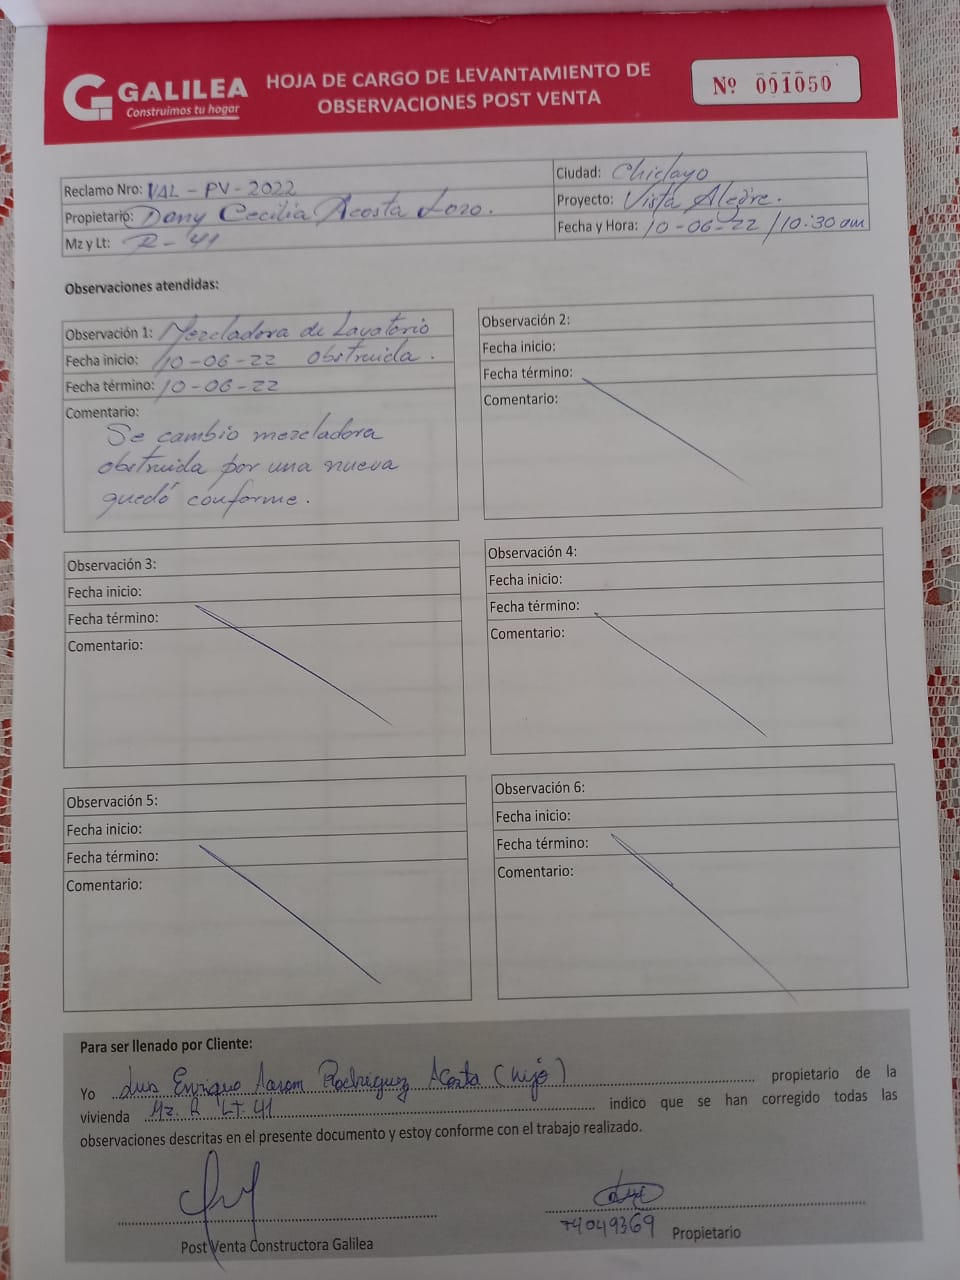 GALILEA
Construimos tu hogar
HOJA DE CARGO DE LEVANTAMIENTO DE
OBSERVACIONES POST VENTA
Nº 001050
Reclamo Nro: VAL - PV - 2022
Propietario: Dany Cecilia Acosta Lozo.
Mz y Lt: R - 41
Ciudad: Chiclayo
Proyecto: Vista Alegre.
Fecha y Hora: 10-06-22 / 10:30 am
Observaciones atendidas:
Observación 1: Mezcladora de Lavatorio
Fecha inicio: 10-06-22 obstruida.
Fecha término: 10-06-22
Comentario:
Se cambio mezcladora
obstruida por una nueva
quedó conforme.
Observación 2:
Fecha inicio:
Fecha término:
Comentario:
Observación 3:
Fecha inicio:
Fecha término:
Comentario:
Observación 4:
Fecha inicio:
Fecha término:
Comentario:
Observación 5:
Fecha inicio:
Fecha término:
Comentario:
Observación 6:
Fecha inicio:
Fecha término:
Comentario:
Para ser llenado por Cliente:
Yo Luis Enrique Aarom Rodriguez Acosta (hijo) propietario de la
vivienda Mz. R LT. 41 indico que se han corregido todas las
observaciones descritas en el presente documento y estoy conforme con el trabajo realizado.
Post Venta Constructora Galilea
74049369 Propietario